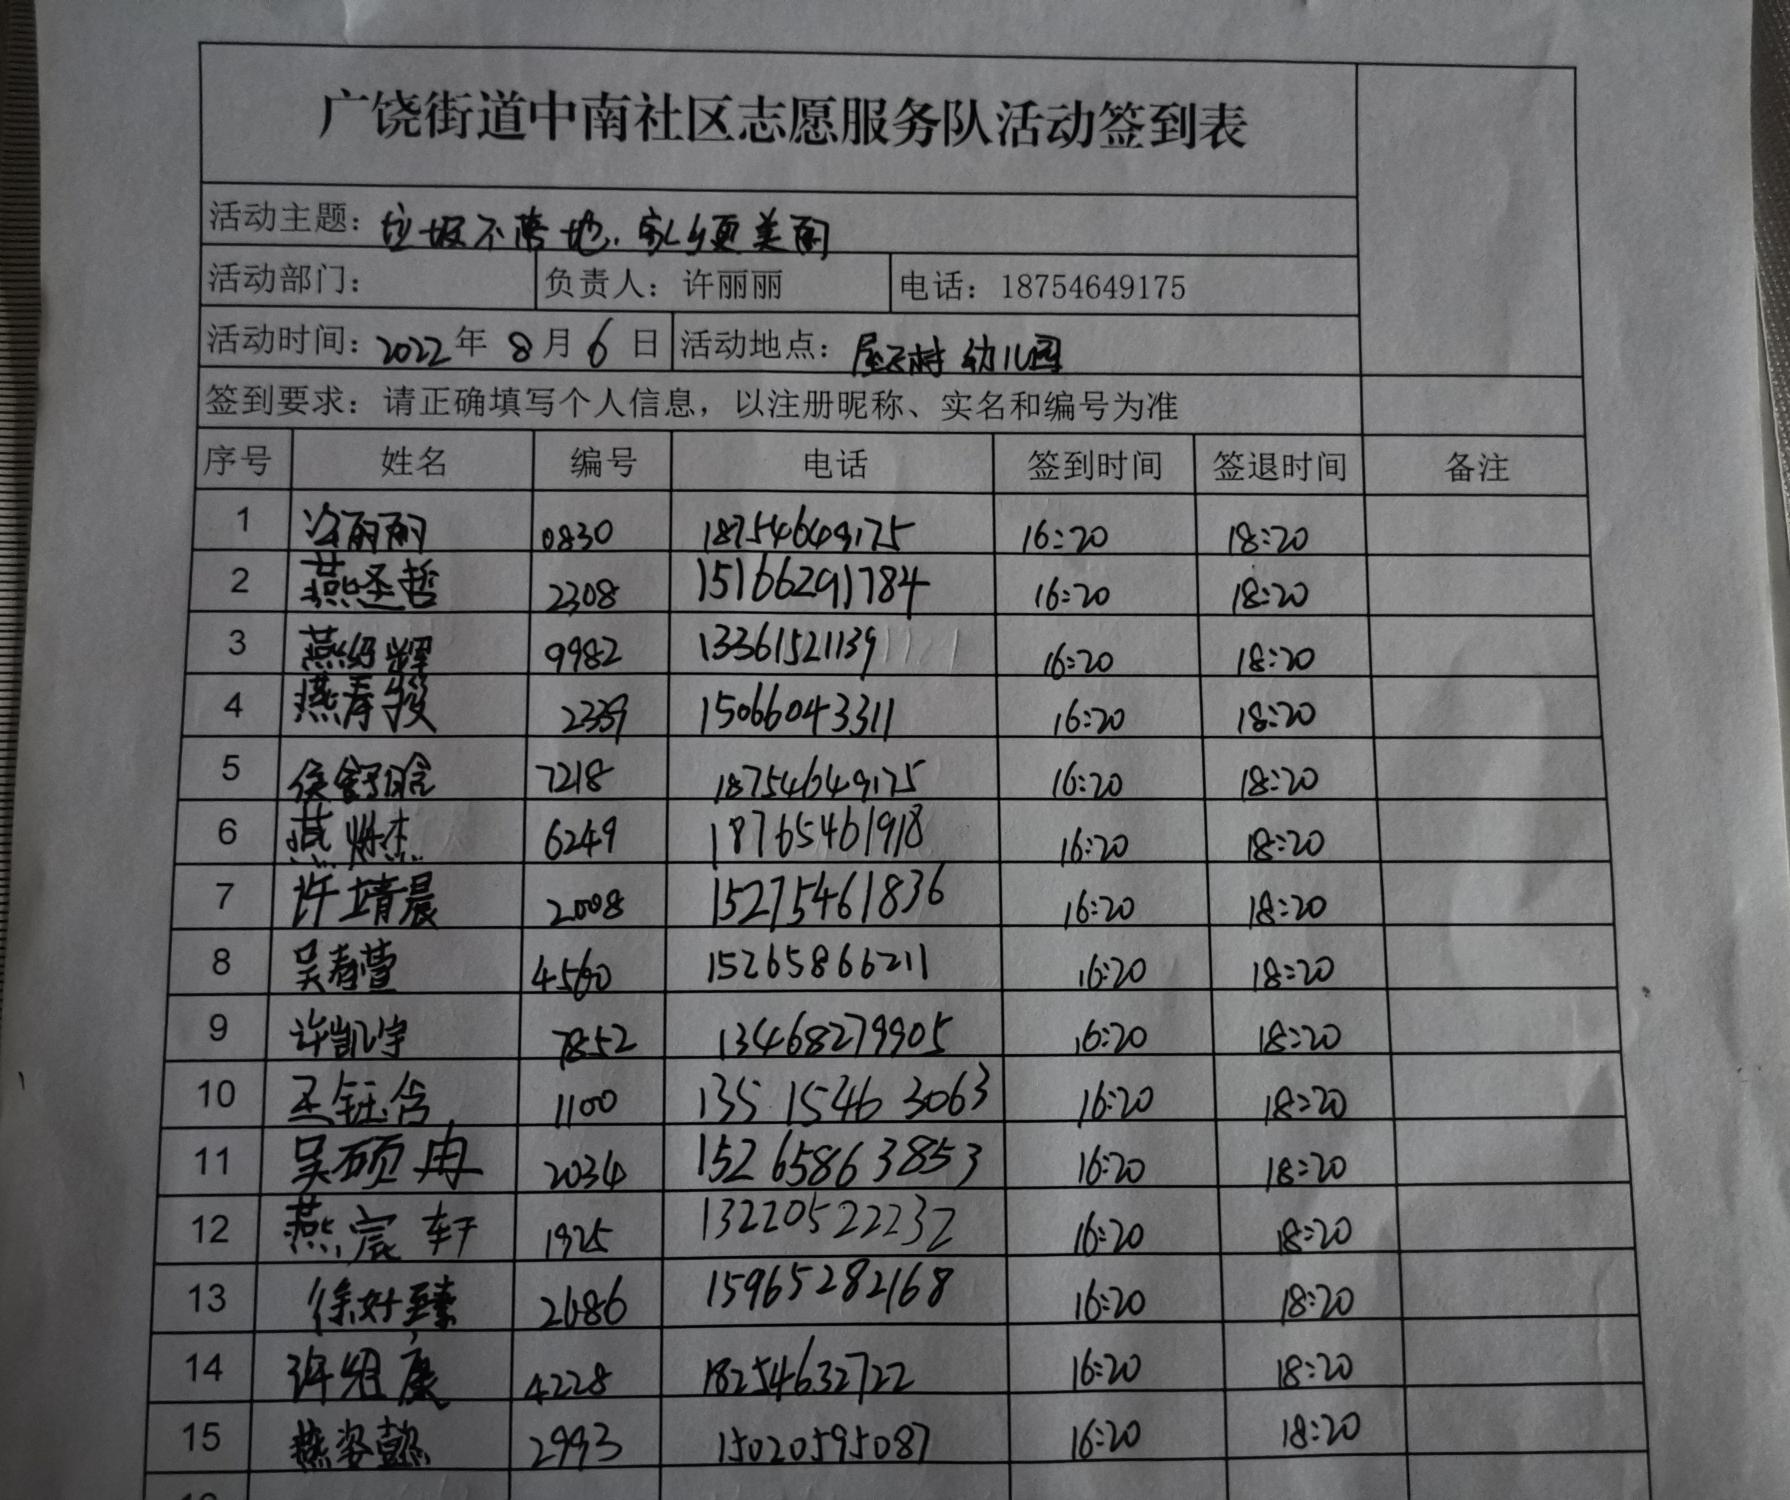 广饶街道中南社区志愿服务队活动签到表
活动主题：垃圾不落地，家乡更美丽
活动部门： 负责人：许丽丽 电话：18754649175
活动时间：2022年 8月6日 活动地点： 幼儿园
签到要求：请正确填写个人信息，以注册昵称、实名和编号为准
序号 姓名 编号 电话 签到时间 签退时间 备注
1 许丽丽 0830 18754649175 16:20 18:20
2 燕圣哲 2308 15166291784 16:20 18:20
3 燕绍辉 9982 13361521139 16:20 18:20
4 燕 2339 15066043311 16:20 18:20
5 侯舒晗 7218 18754649175 16:20 18:20
6 燕烁杰 6249 18765461918 16:20 18:20
7 许靖晨 2008 15275461836 16:20 18:20
8 吴春萱 4560 15265866211 16:20 18:20
9 许凯宇 7852 13468279905 16:20 18:20
10 王钰含 1100 135 1546 3063 16:20 18:20
11 吴硕冉 2034 15265863853 16:20 18:20
12 燕宸轩 1925 13220522232 16:20 18:20
13 徐好臻 2686 15965282168 16:20 18:20
14 许绍康 4228 18254632722 16:20 18:20
15 燕姿懿 2993 15020595087 16:20 18:20